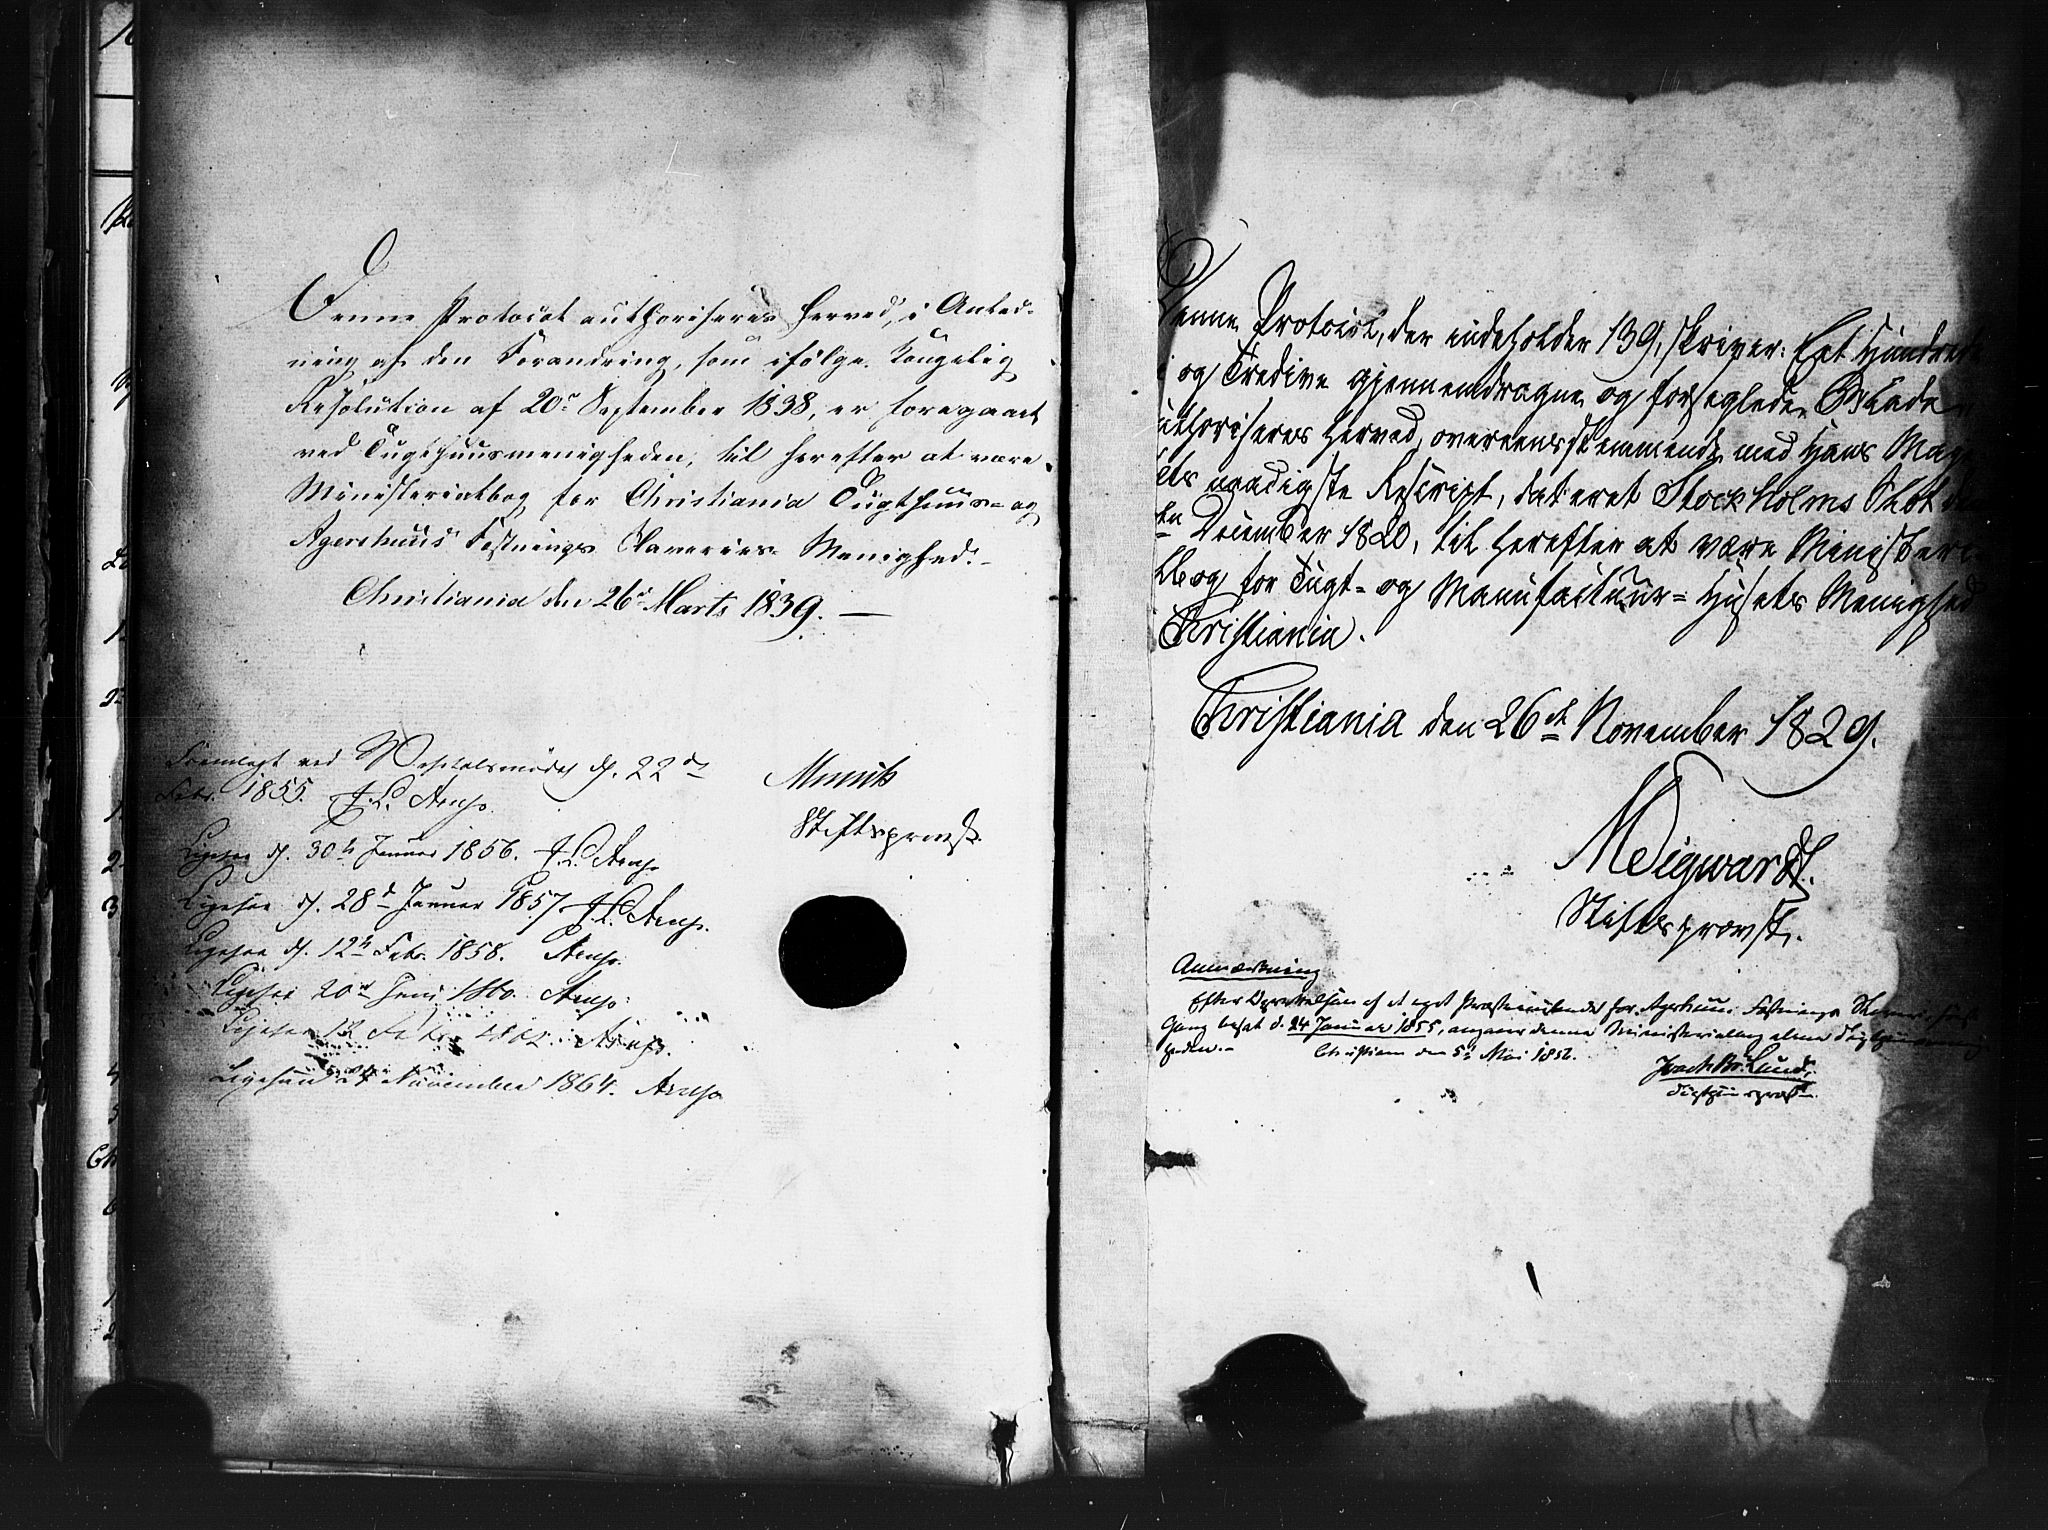 Denne Protocol authoriseres herved, i Anled-
ning af den Forandring, som ifølge Kongelig
Resolution af 20de September 1838, er foregaaet
ved Tugthuusmenigheden, til herefter at være
Ministerialbog for Christiania Tugthuus- og
Agershuus Festnings Slaveries Menighed.-
Christiania den 26de Marts 1839. —
Munch
Stiftsprovst.
Fremlagt ved d. 22de
Febr. 1855. J.C. Arup.
Ligesaa d. 30te Januar 1856. J.C. Arup
Ligesaa d. 28de Januar 1857. J.C. Arup.
Ligesaa d. 12te Febr. 1858. Arup.
Ligesaa 20de Juni 1860. Arup.
Ligesaa 12 Febr. 1862. Arup.
Ligesaa November 1864. Arup
Denne Protocol, der indeholder 139, skriver: Eet Hundrede
og Tredive gjennemdragne og forseglede Blade
uthoriseres herved, overeensstemmende med Hans Maje
ets naadigste Rescript, dateret Stockholms Slot de
December 1820, til herefter at være Ministeri-
lbog for Tugt- og Manufactuur-Husets Menighed
Christiania.
Christiania den 26de November 1829.
Stiftsprovst.
Anmærkning
Efter Oprettelsen af et eget Præsteembede for Agershuus Fæstnings
besat d. 24 Januar 1855, angaaer denne Ministerialbog alene Tugthuusmenig
heden.- Christiania den 5te Mai 1856.
Lund,
Tugthuuspræst.